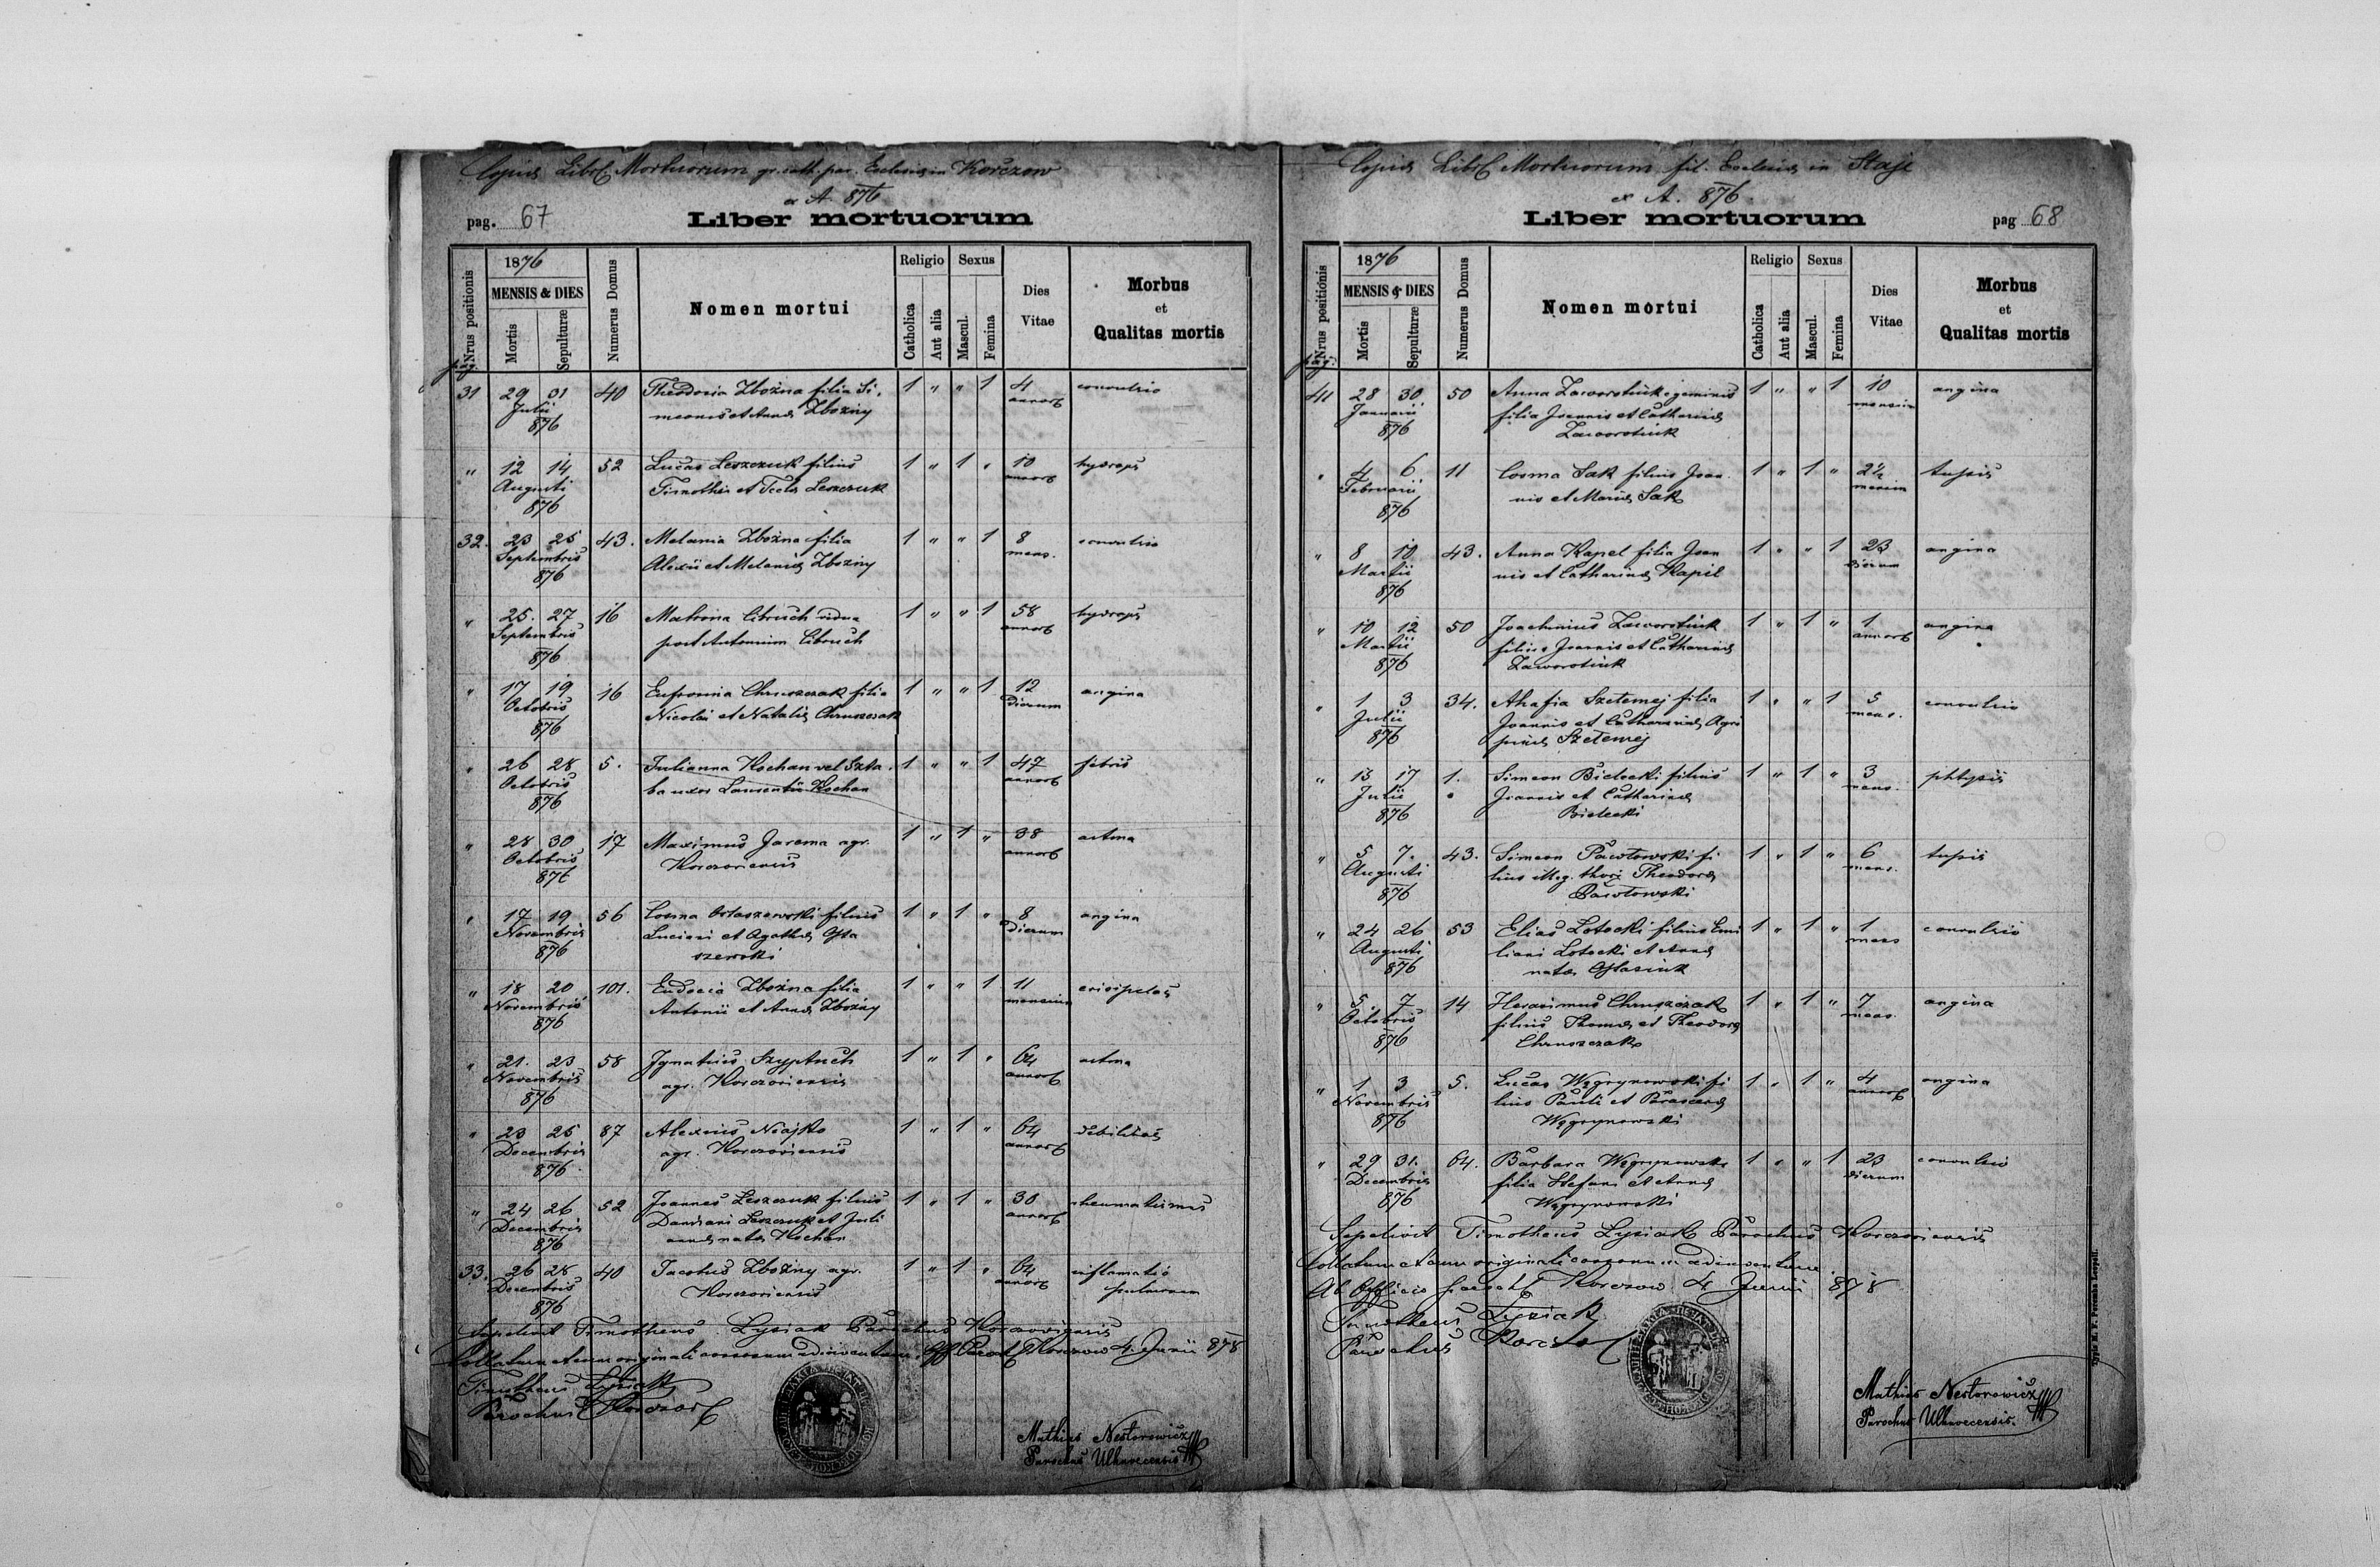 Copia Libri Mortuorum gr. cath. par. Ecclesiae in Korczow
ex A. 876
pag. 67
Liber mortuorum
Nrus positionis
1876
MENSIS & DIES
Mortis
Sepulturæ
Numerus Domus
Nomen mortui
Religio
Catholica
Aut alia
Sexus
Mascul.
Femina
Dies Vitae
Morbus et Qualitas mortis
pag.
31 29 31 40 Theodosia Zbożna filia Si- 1 " " 1 4 convulsio
Julii meonis et Annae Zbożny annor
876
" 12 14 52 Lucas Leszczuk filius 1 " 1 " 10 hydrops
Augusti Timothei et Teclae Leszczuk annor
876
32. 23 25 43. Melania Zbożna filia 1 " " 1 8 convulsio
Septembris Alexii et Melaniae Zbożny mens.
876
" 25. 27 16 Matrona Cibruch vidua 1 " " 1 58 hydrops
Septembris post Antonium Cibruch annor
876
" 17 19 16 Eufrosina Chruszczak filia 1 " " 1 12 angina
Octobris Nicolai et Nataliae Chruszczak dierum
876
" 26 28 5. Julianna Kochan vel Szta- 1 " " 1 47 febris
Octobris ba uxor Laurentii Kochan annor
876
" 28 30 17 Maximus Jarema agr. 1 " 1 " 38 astma
Octobris Korczoviensis annor
876
" 17 19 56 Cosma Ostaszewski filius 1 " 1 " 8 angina
Novembris Luciani et Agathae Osta dierum
876 szewski
" 18 20 101. Eudocia Zbożna filia 1 " " 1 11 erisipelas
Novembris Antonii et Annae Zbożny mensium
876
" 21. 23 58 Ignatius Szyptuch 1 " 1 " 64 astma
Novembris agr. Korczoviensis annor
876
" 23 25 87 Alexius Niajko 1 " 1 " 64 debilitas
Decembris agr. Korczoviensis annor
876
" 24 26 52 Joannes Leszczuk filius 1 " 1 " 30 rheumatismus
Decembris Leszczuk et Juli annor
876 annae nata Kochan
33. 26 28 40 Jacobus Zbożny agr. 1 " 1 " 64 inflamatio
Decembris Korczoviensis annor pulmonum
876
Sepelivit Timotheus Lysiak Parochus Korczoviensis
Collatum cum originali consonum adinventum. Off. Paroch. Korczow 4 Junii 878
Timotheus Lysiak
Parochus Korczov
Mathias Nestorowicz
Parochus Uhnovecensis
Copia Libri Mortuorum fil. Ecclesiae in Staje
ex A. 876.
Liber mortuorum
pag 68
Nrus positionis
1876
MENSIS & DIES
Mortis
Sepulturæ
Numerus Domus
Nomen mortui
Religio
Catholica
Aut alia
Sexus
Mascul.
Femina
Dies Vitae
Morbus et Qualitas mortis
pag.
41 28 30 50 Anna Zaworotiuk e geminis 1 " " 1 10 angina
Januarii filia Joannis et Catharinae mensium
876 Zaworotiuk
" 4 6 11 Cosma Sak filius Joan- 1 " 1 " 2½ tussis
Februarii nis et Mariae Sak mensium
876
" 8 10 43. Anna Kapel filia Joan 1 " " 1 23 angina
Martii nis et Catharinae Kapil dierum
876
" 10 12 50 Joachimus Zaworotiuk 1 " 1 " 1 angina
Martii filius Joannis et Catharinae annor
876 Zaworotiuk
" 1 3 34. Ahafia Szetemej filia 1 " " 1 5 convulsio
Julii Joannis et Catharinae mens.
876 Szetemej
" 15 17 1. Simeon Bielecki filius 1 " 1 " 3 phtysis
Julii Joannis et Catharinae mens.
876 Bielecki
" 5 7. 43. Simeon Pawłowski fi 1 " 1 " 6 tussis
Augusti lius illeg. thori Theodorae mens.
876 Pawłowski
" 24 26 53 Elias Lotocki filius Emi 1 " 1 " 1 convulsio
Augusti liani Lotocki et Annae mens
876 nata
" 5. 7 14 Herasimus Chruszczak 1 " 1 " 7 angina
Octobris filius Thomae et Theodorae mens.
876 Chruszczak
" 1 3 5. Lucas Węgrynowski fi 1 " 1 " 4 angina
Novembris lius Pauli et Parascevae annor
876 Węgrynowski
" 29 31. 64. Barbara Węgrynowska 1 " " 1 23 convulsio
Decembris filia Stefani et Annae dierum
876 Węgrynowski
Sepelivit Timotheus Lysiak Parochus Korczoviensis
Collatum cum originali consonum adinventum
Ab Officio paroch. Korczow 4 Junii 878
Timotheus Lysiak
Parochus Korczov
Mathias Nestorowicz
Parochus Uhnovecensis.